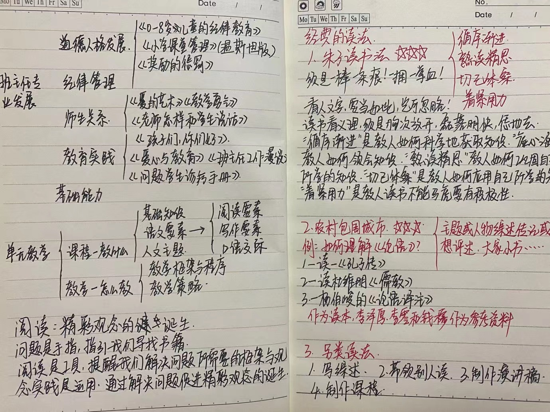 Mo Tu We Th Fr Sa Su
道德人格发展
《0-8岁儿童的纪律教育》
《小学课堂管理》(温斯坦版)
《奖励的惩罚》
班主任专
业发展
纪律管理
师生关系
《爱的艺术》《教学勇气》
《老师怎样和学生说话》
教育实践
《孩子们,你们好》
《爱心与教育》
《班主任工作漫谈》
《问题学生诊疗手册》
基础能力
单元教学
课程—教什么
基础知识
语文要素
人文主题
阅读要素
写作要素
口语交际
教学—怎么教
教学框架与程序
教学策略
阅读:精彩观念的诞生
问题是手指,指引我们寻找书籍
阅读是工具,提醒我们解决问题所需要的框架与观
念实践是运用.通过解决问题促进精彩观念的诞生
Memo No.
Mo Tu We Th Fr Sa Su
Date
经典的读法
1.朱子读书法 ☆☆☆
循序渐进
熟读精思
切己体察
着紧用力
须是一棒一条痕!一掴一掌血!
看人文字,要当如此,岂可忽略!
读书看义理,须是胸次放开,磊落明快,恁地去
"循序渐进"是教人如何科学地获取知识,
教人如何领会知识."熟读精思"教人如何
所学的知识."切己体察"是教人如何应用自己所学
"着紧用力"是教人读书不能
2.农村包围城市 ☆☆☆
例:如何理解《论语》?
主题或人物综述传记或
思想评述.大家小书……
1一读—《孔子传》
2—读杜维明《儒教》
3—杨伯峻的《论语译注》
作为读本,李泽厚、李零和钱穆作为参考资料
3.另类读法
1.写综述 2.帮领别人读 3.制作演讲稿
4.制作课程